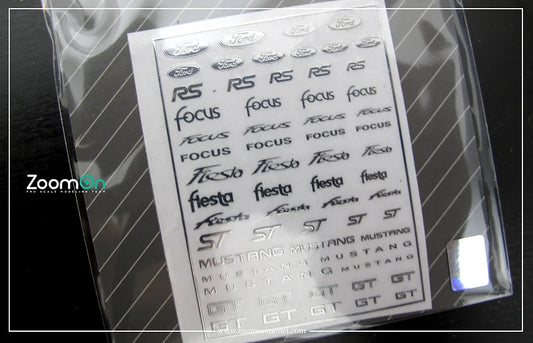 Ford Ford Ford Ford
Ford Ford Ford Ford Ford
RS RS RS RS RS
focus focus focus focus
FOCUS FOCUS FOCUS FOCUS
FOCUS FOCUS FOCUS FOCUS
Fiesta Fiesta Fiesta Fiesta
fiesta fiesta fiesta fiesta
Fiesta Fiesta Fiesta Fiesta
ST ST ST ST
MUSTANG MUSTANG MUSTANG
MUSTANG MUSTANG
MUSTANG MUSTANG
GT GT GT GT GT
GT GT GT GT GT
ZoomOn
PRO SCALE MODELING TEAM
www.zoomonmodel.com